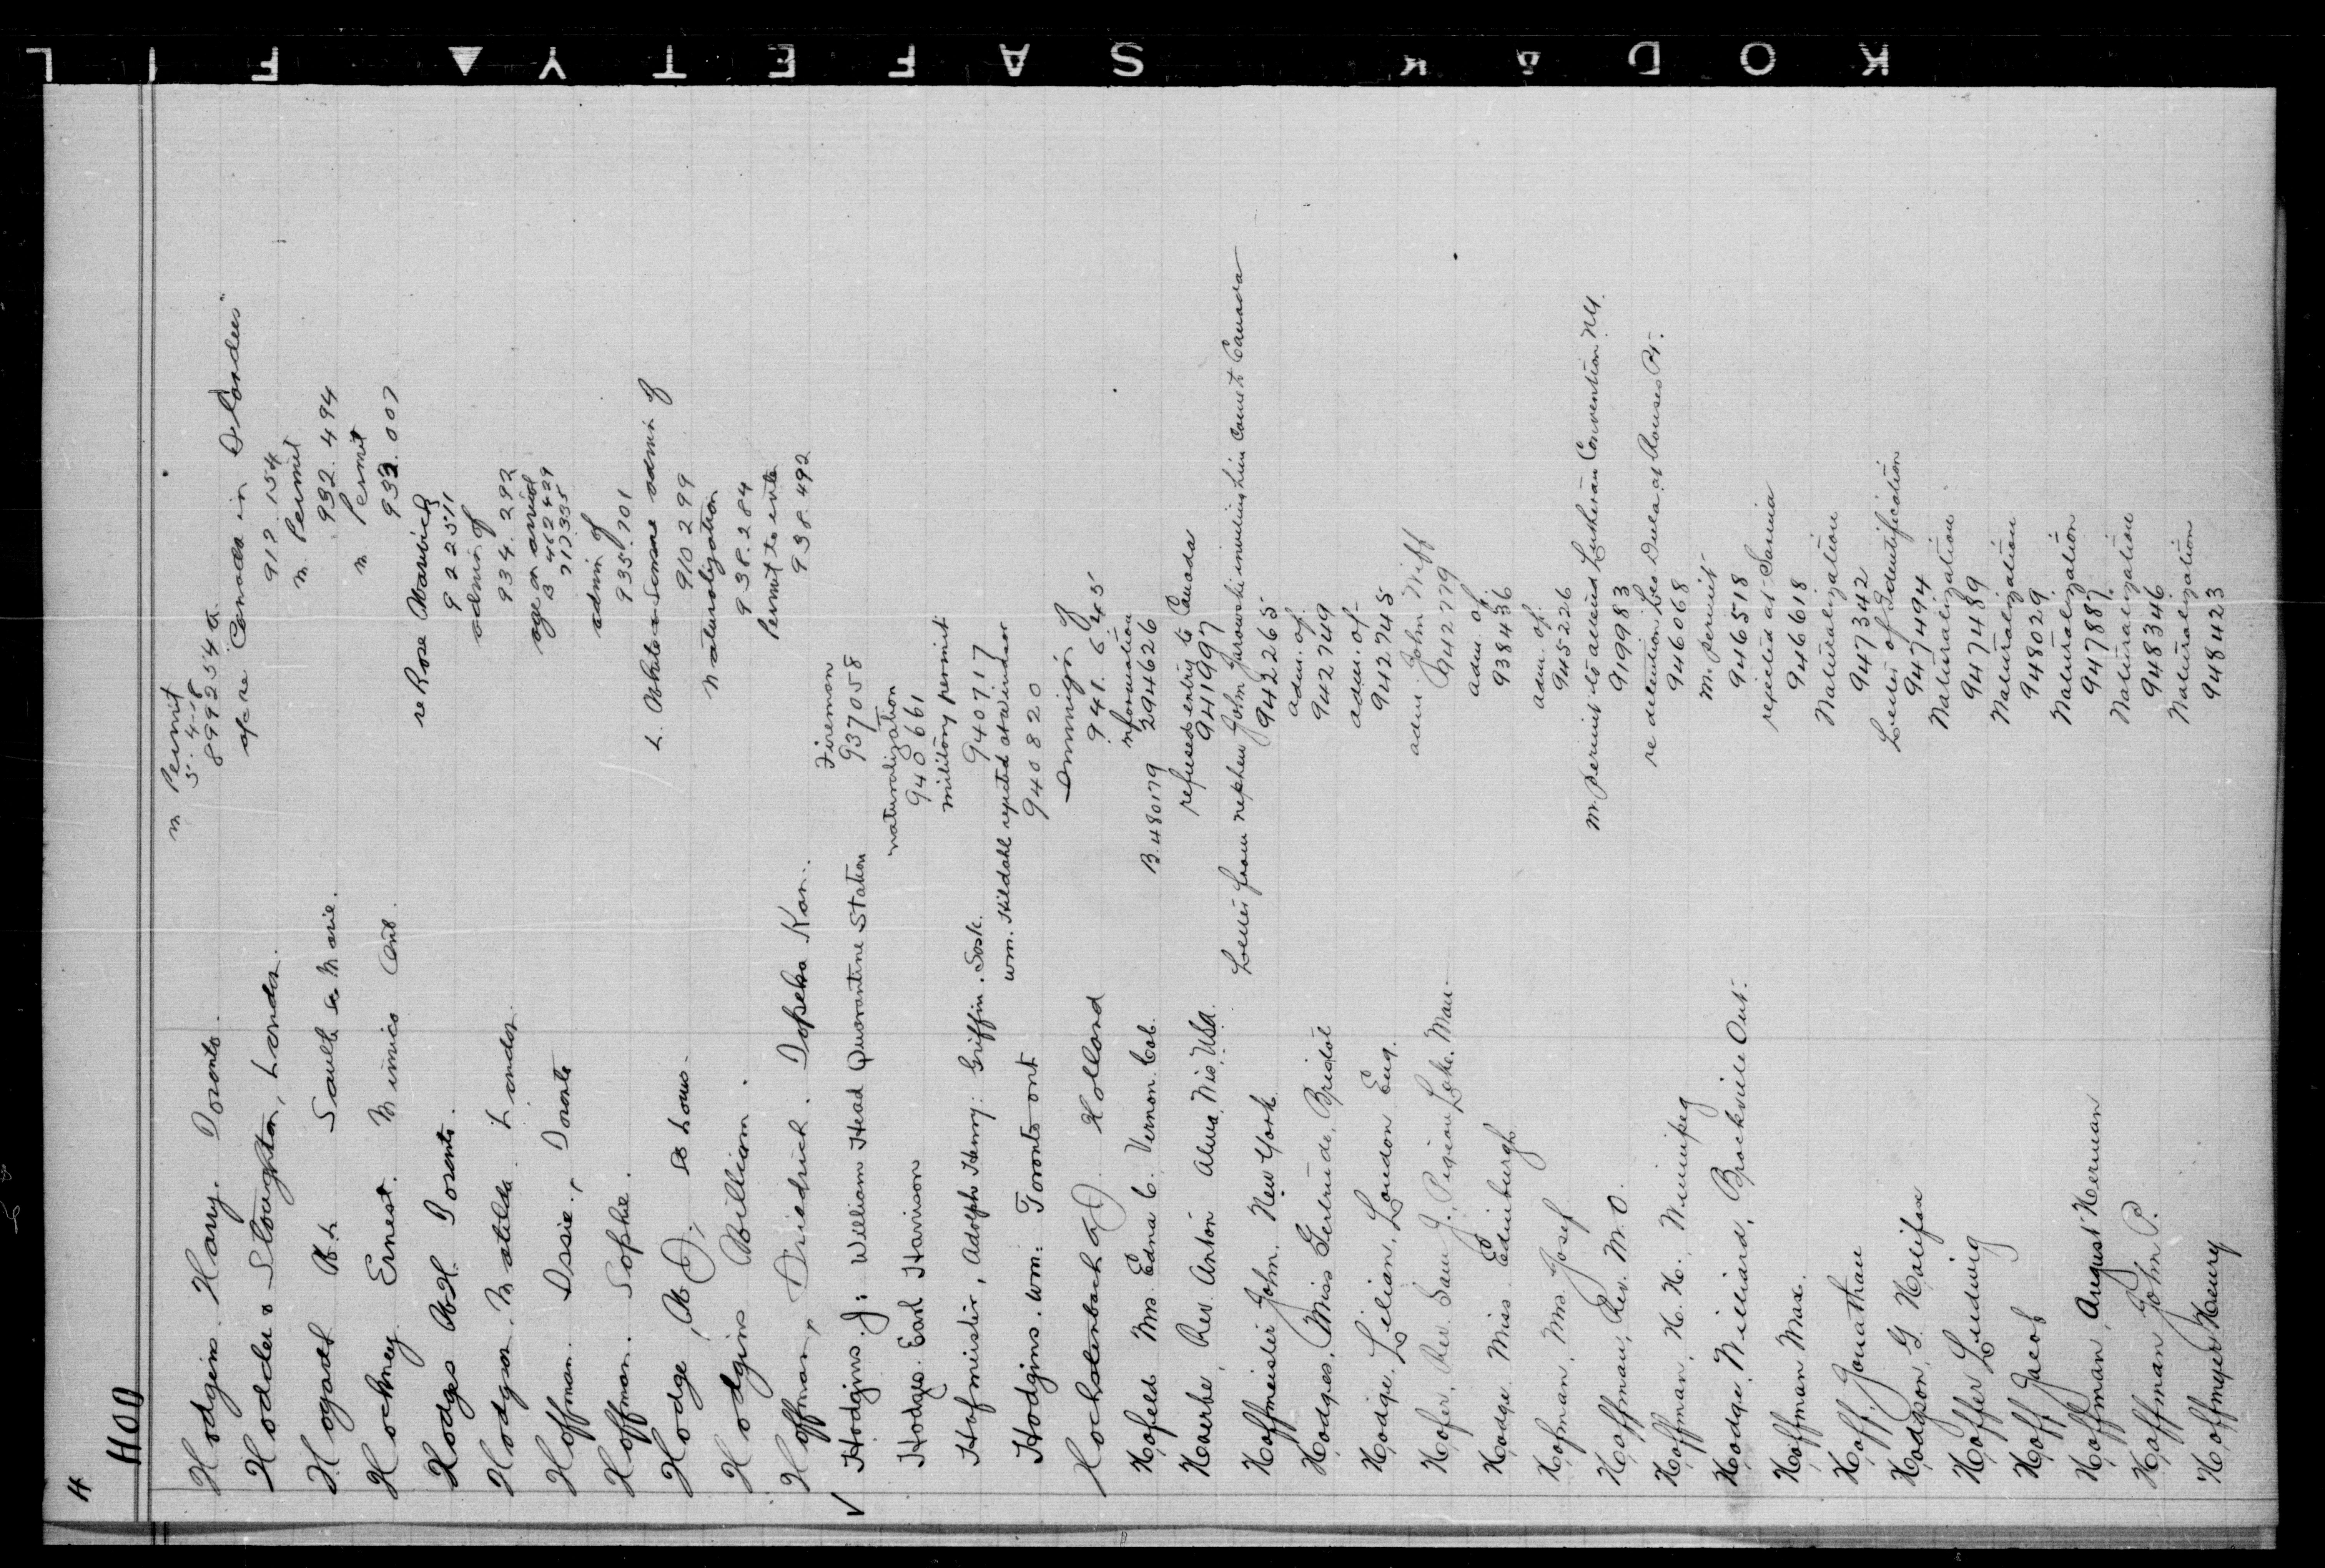 KODAK SAFETY ▲ FIL
4
HOD
Hodgins. Harry. Toronto. m Permit 5-4-18 899254 a.
Hodder & Stoughton, London. of re Canada in Flanders" 912.154
Hogarth W.L. Sault Ste Marie. m Permit 932.494
Hockney Ernest. Mimico Ont. m Permit 933.007
Hodges W.H. Toronto. re Rose 922511
Hodgson. Matilda. London. admin of 934.292
Hoffman. Ossie., Toronto age on arrival B 462429 717335
Hoffman. Sophie. admin of 935.701
Hodge, W.D., St Louis. admin of 910299
Hodgins William. naturalization 938.284
Hoffman, Driedrich. Topeka Kan. Permit to enter 938.492
✓ Hodgins. J: William Head Quarantine Station Fireman 937058
Hodges. Earl Harrison naturalization 940661
Hofmeister, Adolph Henry: Griffin. Sask. military permit 940717
Hodgins. Wm. Toronto Ont wm. Hildahl rejected at Windsor 940820
Holland Immign of 941.645
Hofeld Mrs. Edna C. Vernon. Cob. B.480179 information 294626
Hoerbe, Rev. Anton Alma, Wis, USA. refused entry to Canada 941997
Hoffmeister John. New York. Letter from nephew John Jarowski inviting him come to Canada 942265
Hodges, Miss Gertrude, Bristol adm. of 942749
Hodge, Lilian, London Eng. adm. of 942745
Hofer, Rev. Sam J., Pigeon Lake. Man. adm. John Wiff 942779
Hodge Miss. Edinburgh adm. of. 938436
Hofman, Mrs. Josef adm. of. 945226
Hoffman, Rev. M.O. m. permit to attend Lutheran Convention N.Y. 919983
Hoffman, H.H. Winnipeg re detention Leo at Rouses Pt. 946068
Hodge, Milliard, Brockville Ont. m. permit 946518
Hoffman Max. rejected at Sarnia 946618
Hoff, Jonathan Naturalization 947342
Hodgson, G. Halifax Letter of Identification 947494
Hoffer Ludwig Naturalization 947489
Hoff Jacob Naturalization 948029
Hoffman, August Herman Naturalization 947887
Hoffman John P. Naturalization 948346
Hoffmyer Henry Naturalization 948423